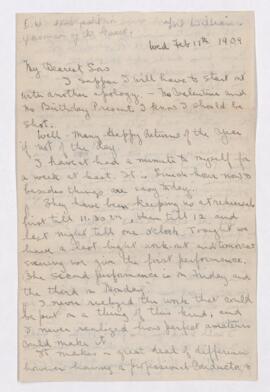 Fort William
Wed Feb 17th 1909
My Dearest Sis
I suppose I will have to start out
with another apology. - No Valentine and
No Birthday Present. I know I should be
Shot.
Well - Many Happy Returns of the Year
if not of the day.
I haven't had a minute to myself for
a week at least. It is lunch hour now &
besides things are easy today.
They have been keeping us at rehearsals
first till 11.30 , then till 12 and
last night till one o'clock. Tonight we
have a last night work-out and tomorrow
evening we give the first performance.
The second performance is on Friday and
the third on Monday.
I never realized the work that could
be put on a thing of this kind, and
I never realized how perfect amateurs
could make it.
It makes a great deal of difference
however having a professional conductor, &